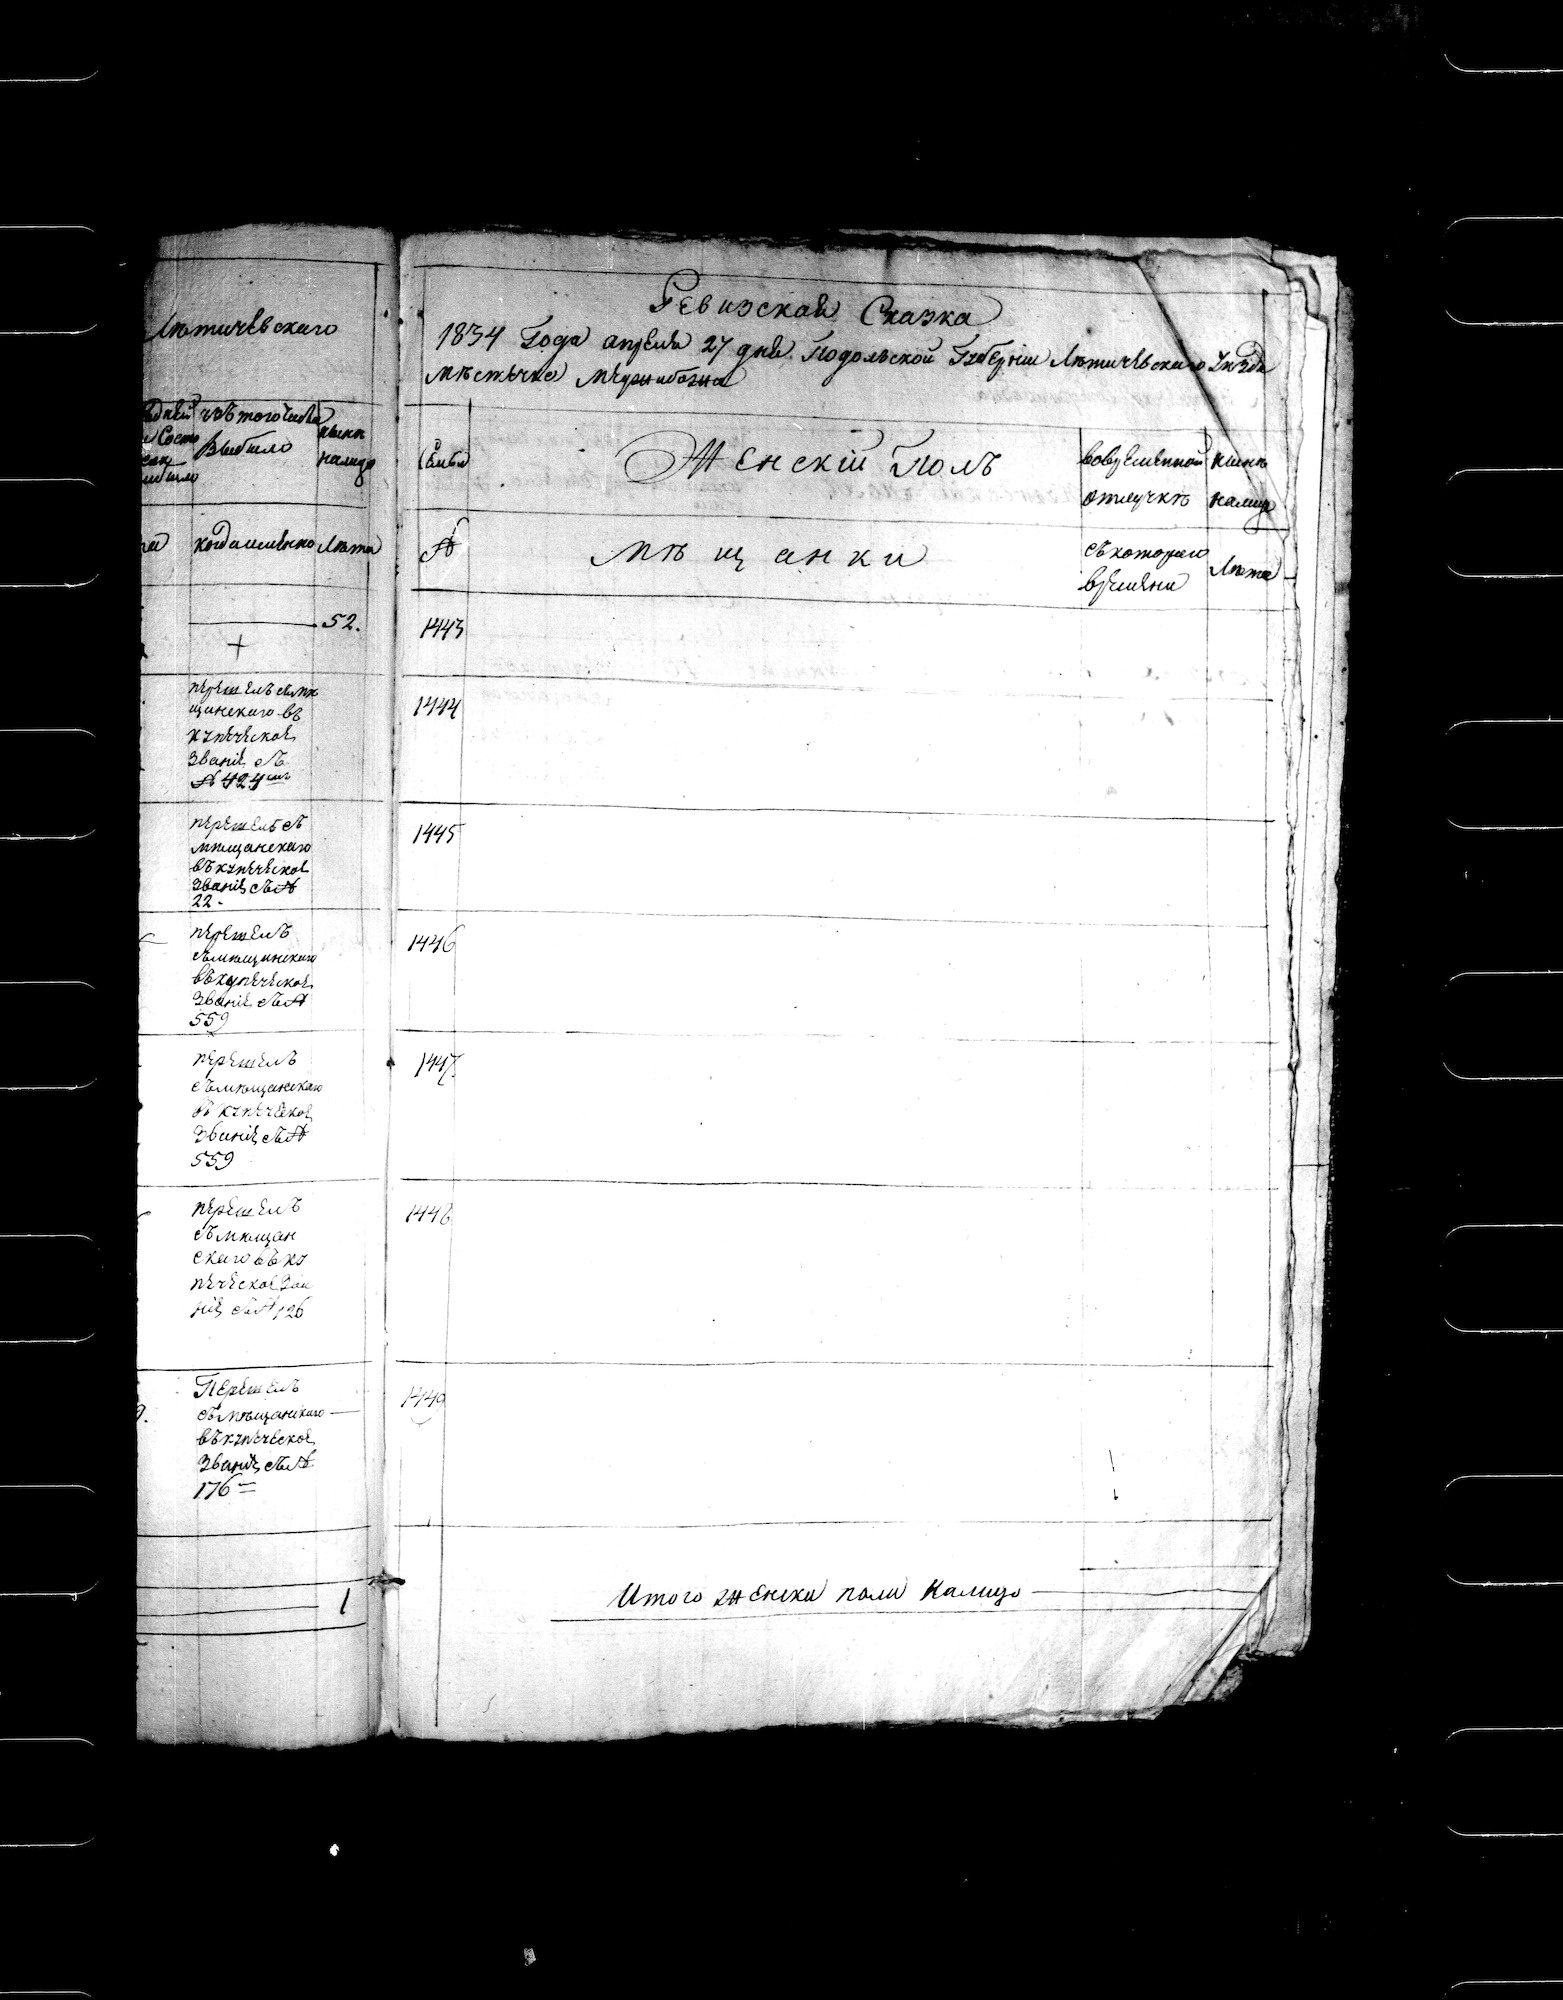 Лѣтичевскаго
изъ того числа
выбыло
нынѣ
налицо
когда именно
Лѣта
52.
перешелъ съмѣ
щанскаго въ
купеческое
званіе съ
№ 424
перешелъ съ
мѣщанскаго
въ купеческое
званіе съ №
22.
перешелъ
съмѣщанскаго
въ купеческое
званіе съ №
559
перешелъ
съмѣщанскаго
въ купеческое
званіе съ №
559
перешелъ
съ мѣщан
скаго въ ку
печеское зва
ніе съ № 126
Перешелъ
съмѣщанскаго
въ купеческое
званіе съ №
176
1
Ревизская Сказка
1834 Года апреля 27 дня Подольской Губерніи Лѣтичевскаго Уѣзда
мѣстечка Меджибожа
Семьи
Женскій Полъ
вовременной
отлучкѣ
нынѣ
налицо
№
мѣщанки
съкотораго
времени
Лѣта
1443
1444
1445
1446
1447.
1448
1449
Итого женска пола налицо